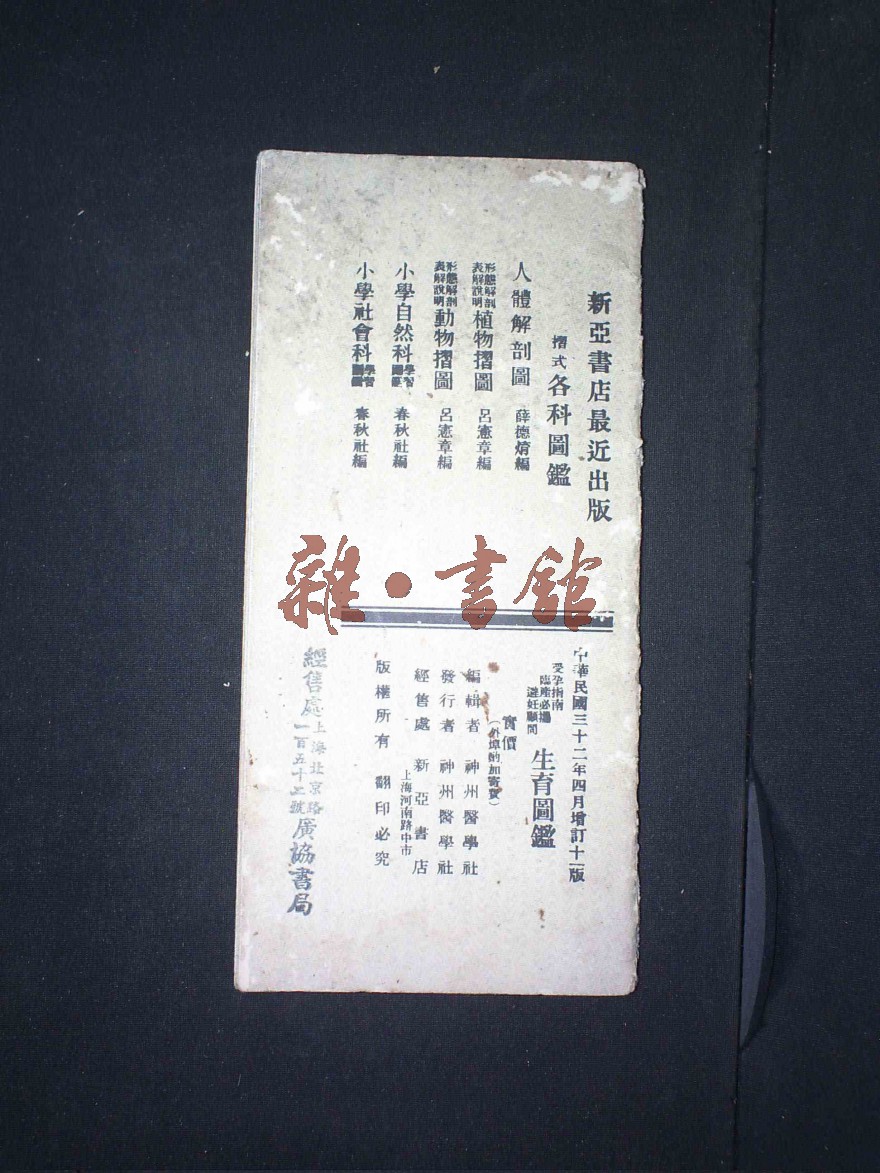 新亞書店最近出版
摺式各科圖鑑
人體解剖圖 薛德焴編
形態解剖表解說明植物摺圖 呂憲章編
形態解剖表解說明動物摺圖 呂憲章編
小學自然科學習圖鑑 春秋社編
小學社會科學習圖鑑 春秋社編
雜·書館
中華民國三十二年四月增訂十一版
受孕指南
臨產必攜
避妊顧問
生育圖鑑
實價
(外埠酌加寄費)
編輯者 神州醫學社
發行者 神州醫學社
經售處 新亞書店
上海河南路中市
版權所有 翻印必究
經售處上海北京路一百五十二號廣協書局